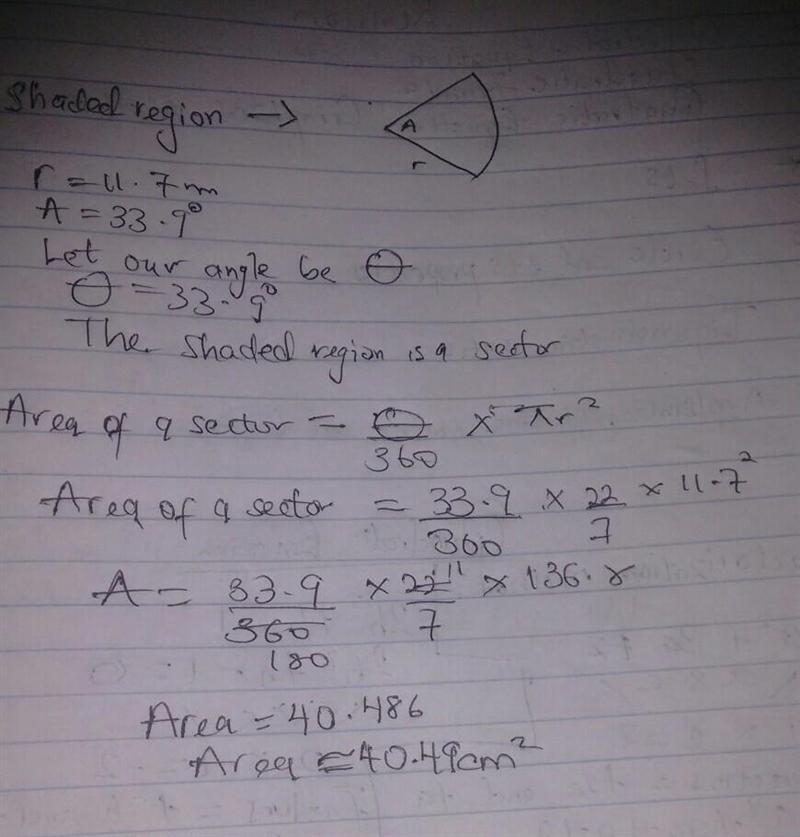 Shaded region →
A
r
r = 11.7m
A = 33.9°
Let our angle be θ
θ = 33.9°
The shaded region is a sector
Area of a sector = θ/360 × πr²
Area of a sector = 33.9/360 × 22/7 × 11.7²
A = 33.9/360 × 22 11/7 × 136.8
180
Area = 40.486
Area ≈ 40.49cm²